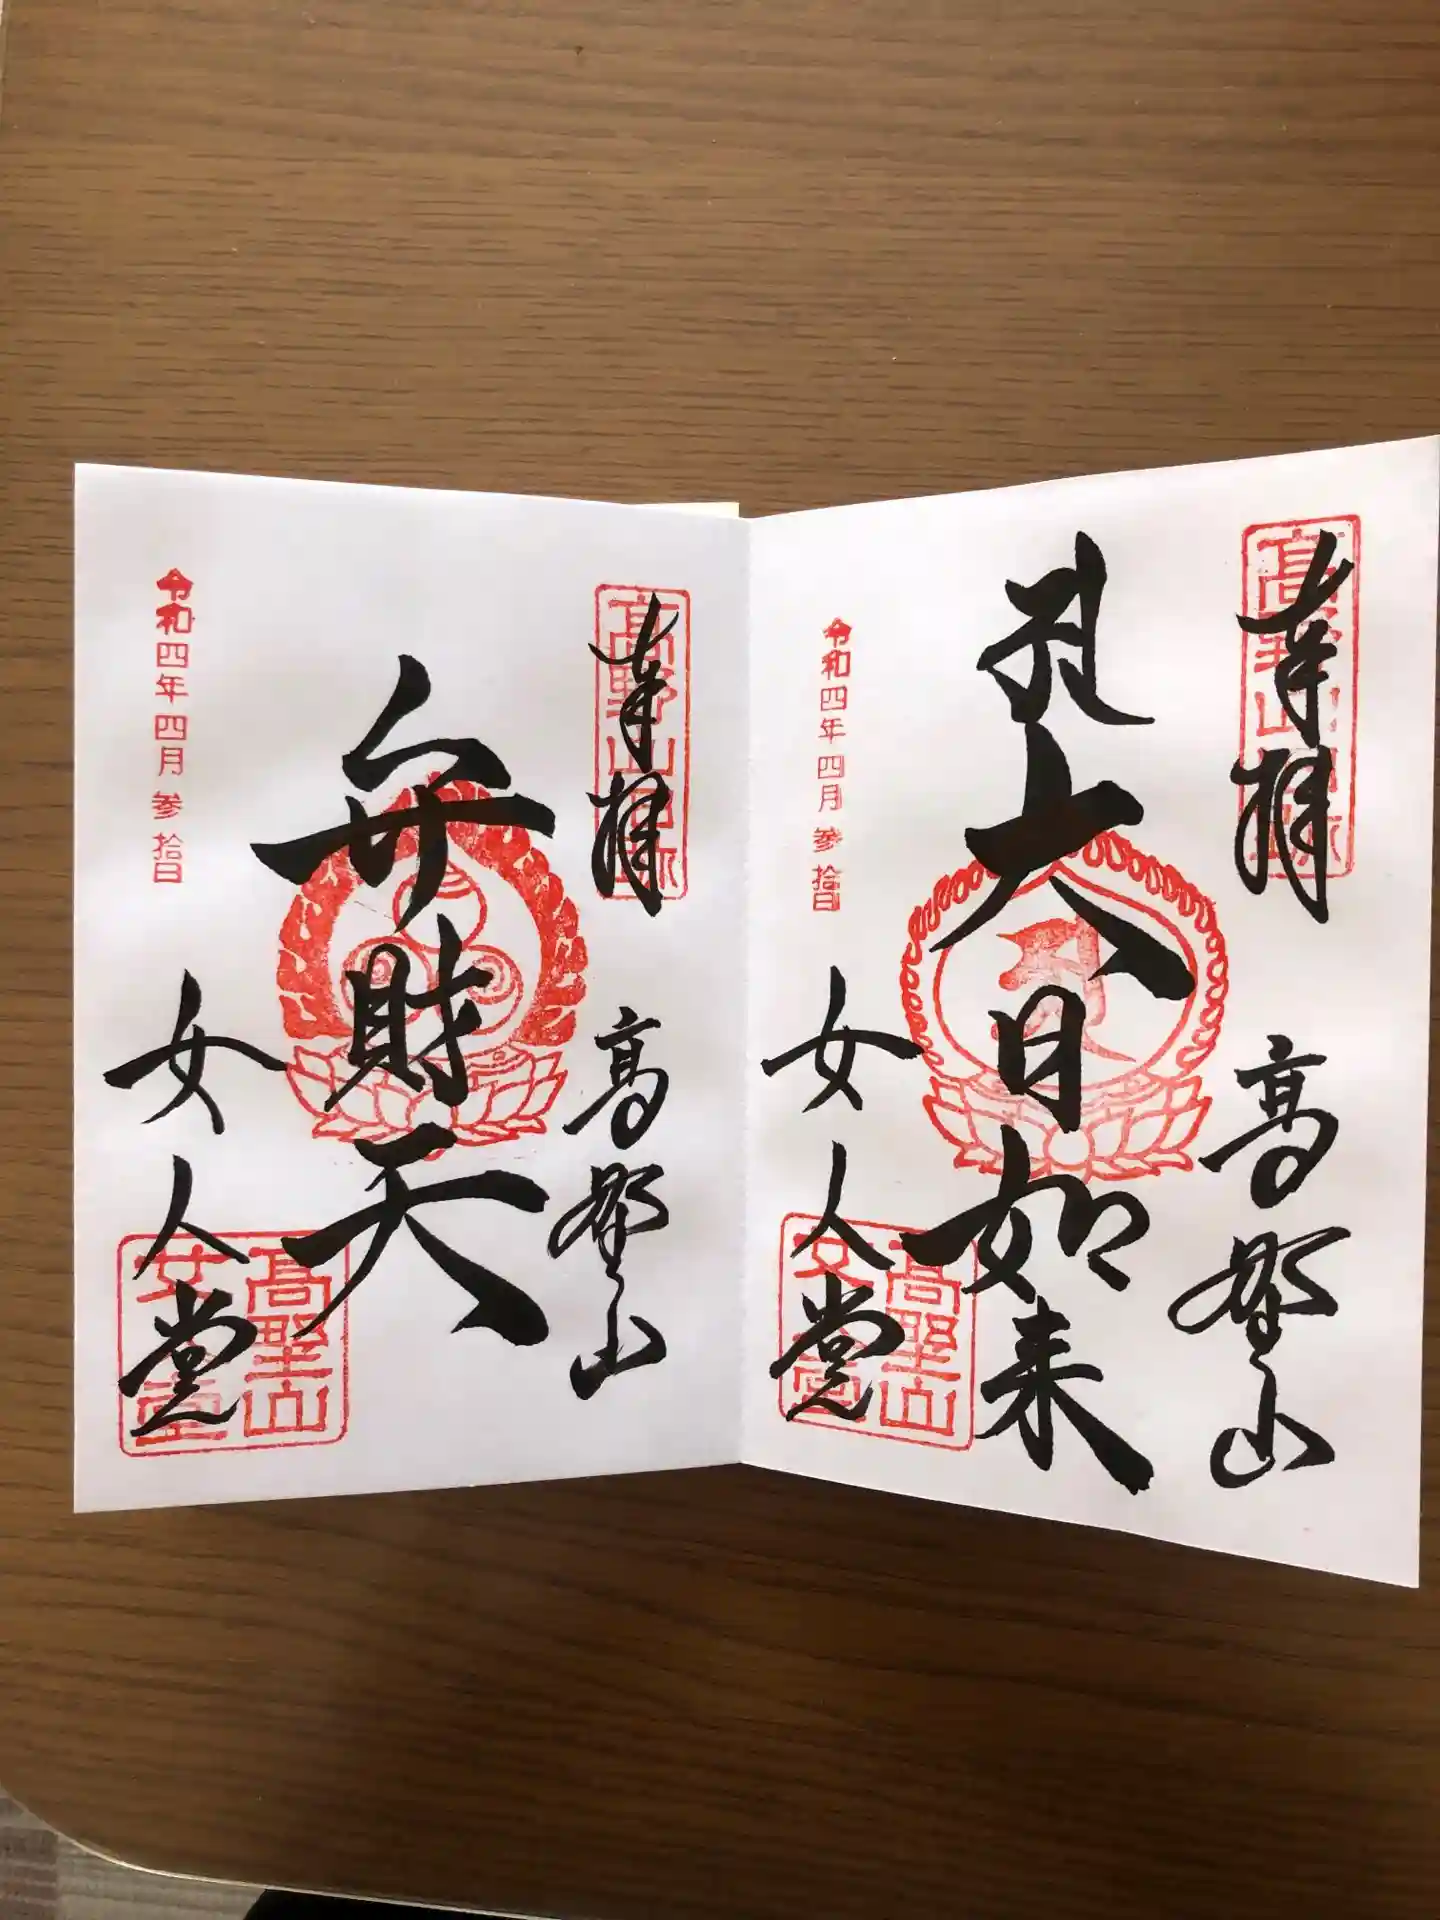 奉拝
高野山
大日如来
令和四年四月参拾日
女人堂
高野山
女人堂
奉拝
高野山
弁財天
令和四年四月参拾日
女人堂
高野山
女人堂